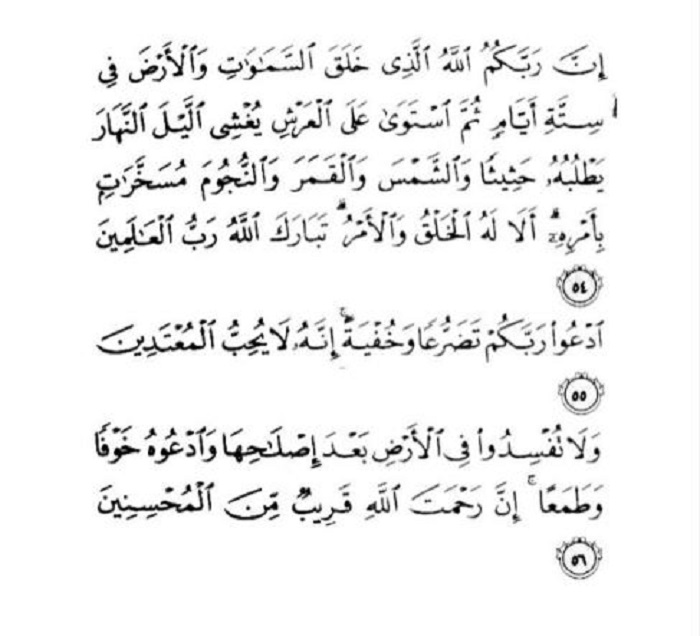 إِنَّ رَبَّكُمُ ٱللَّهُ ٱلَّذِى خَلَقَ ٱلسَّمَـٰوَٰتِ وَٱلْأَرْضَ فِى
سِتَّةِ أَيَّامٍ ثُمَّ ٱسْتَوَىٰ عَلَى ٱلْعَرْشِ يُغْشِى ٱلَّيْلَ ٱلنَّهَارَ
يَطْلُبُهُۥ حَثِيثًا وَٱلشَّمْسَ وَٱلْقَمَرَ وَٱلنُّجُومَ مُسَخَّرَٰتٍۭ
بِأَمْرِهِۦٓ ۗ أَلَا لَهُ ٱلْخَلْقُ وَٱلْأَمْرُ ۗ تَبَارَكَ ٱللَّهُ رَبُّ ٱلْعَـٰلَمِينَ
٥٤
ٱدْعُوا۟ رَبَّكُمْ تَضَرُّعًا وَخُفْيَةً ۚ إِنَّهُۥ لَا يُحِبُّ ٱلْمُعْتَدِينَ
٥٥
وَلَا تُفْسِدُوا۟ فِى ٱلْأَرْضِ بَعْدَ إِصْلَـٰحِهَا وَٱدْعُوهُ خَوْفًا
وَطَمَعًا ۚ إِنَّ رَحْمَتَ ٱللَّهِ قَرِيبٌ مِّنَ ٱلْمُحْسِنِينَ
٥٦